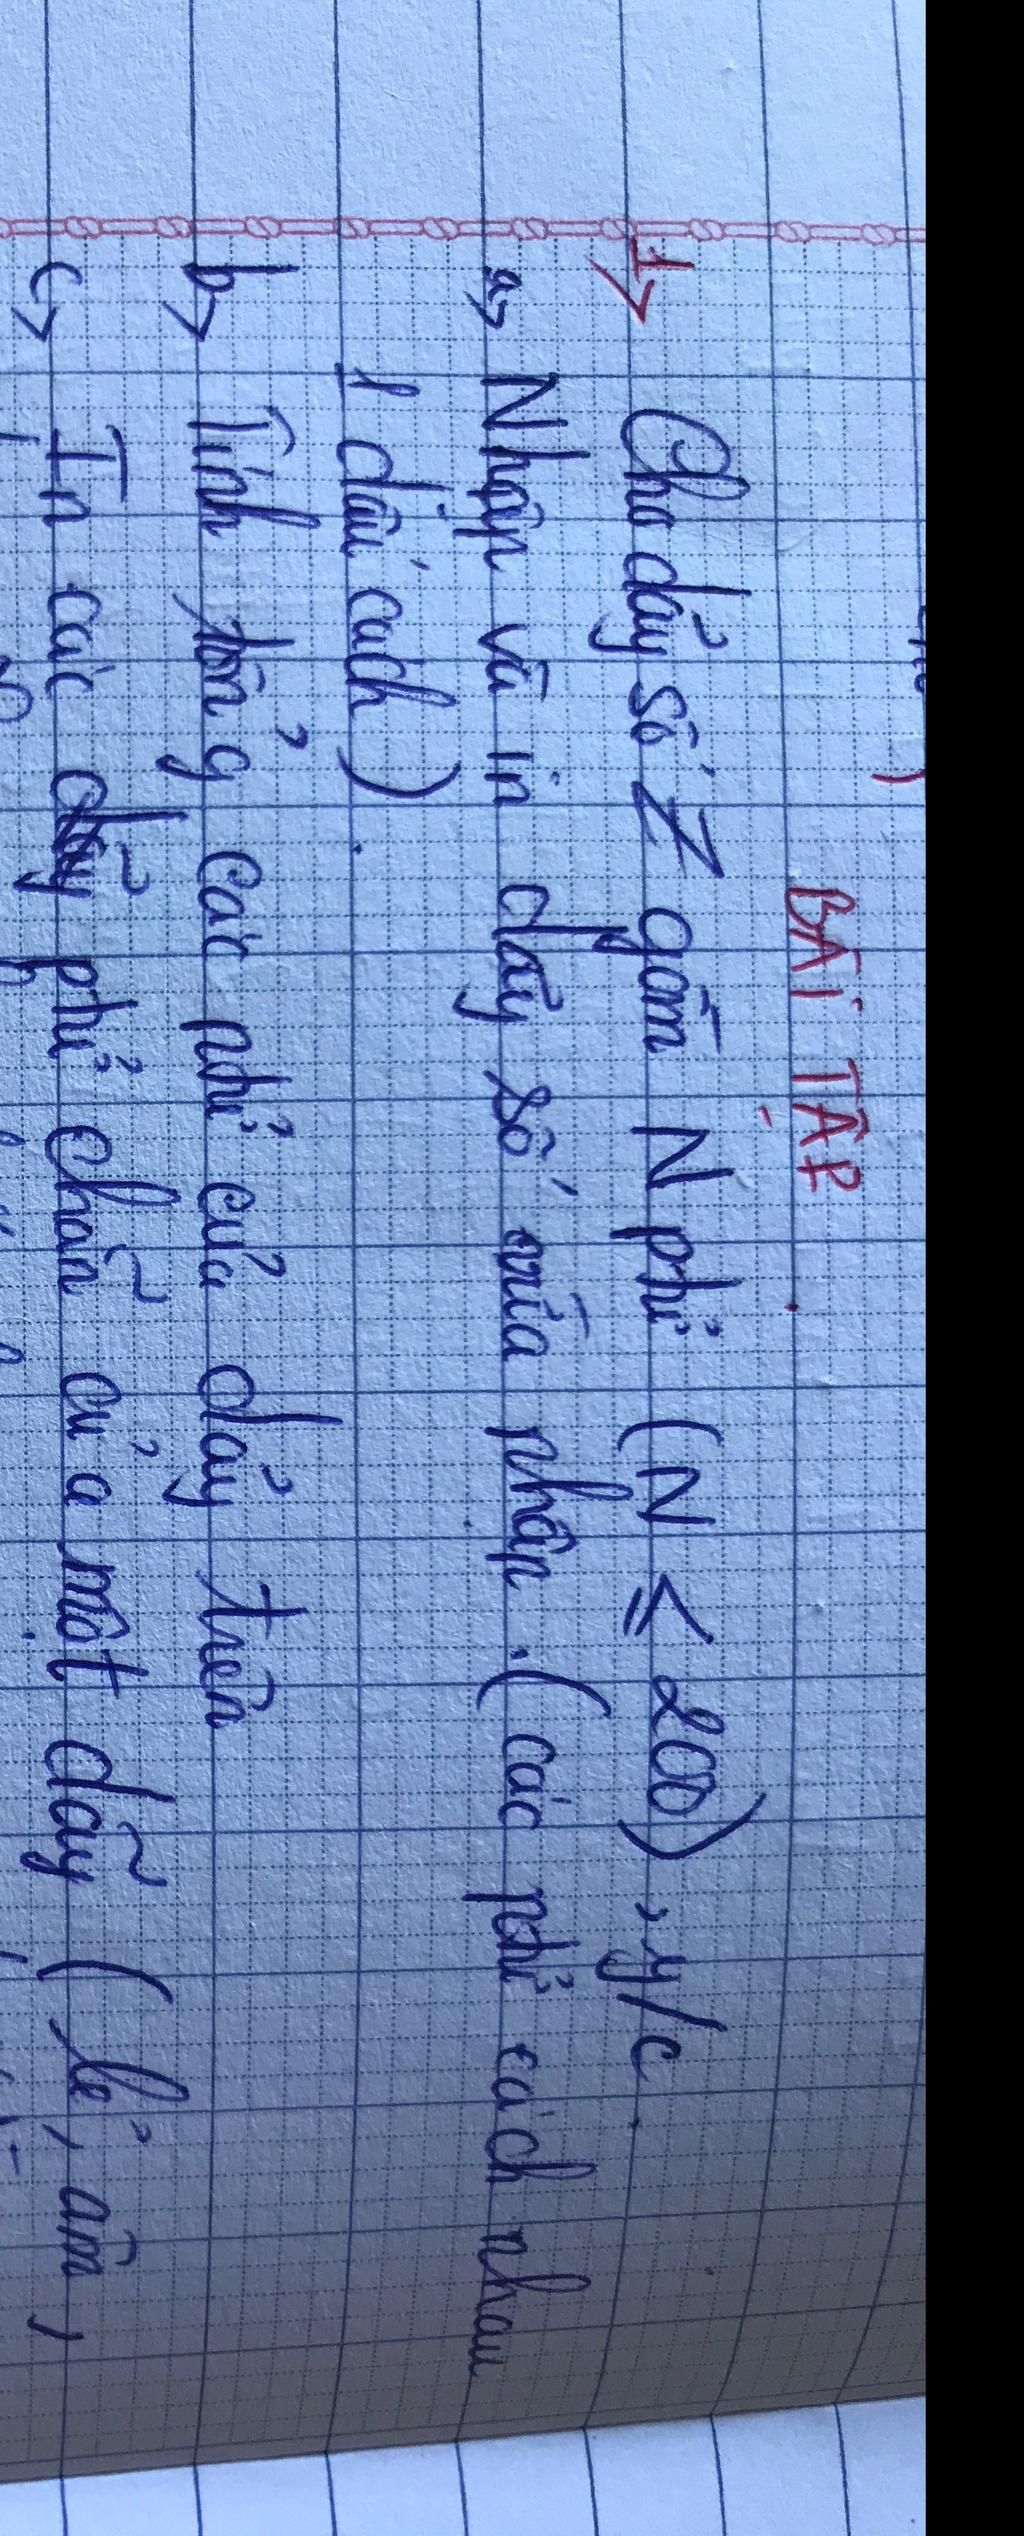 BÀI TẬP
1> Cho dảy số Z gồm N phỉ (N ≤ 200), y/c
a> Nhập và in dãy số vừa nhập. (các phỉ cách nhau
1 dấu cách).
b> Tính tổng các phỉ của dảy trên
c> In các phỉ chẵn của một dãy (lẻ, âm,